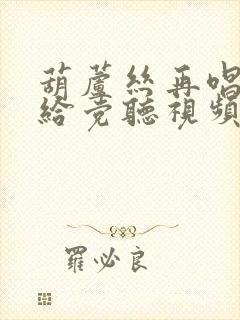 葫蘆絲再唱
給党聽視頻
羅必良